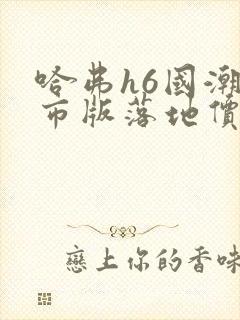 哈弗h6國潮
市版落地價
戀上你的香味